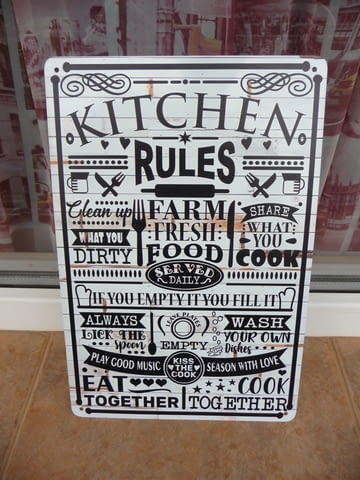 KITCHEN
RULES
Clean up
WHAT YOU
DIRTY
FARM
FRESH
FOOD
SERVED
DAILY
SHARE
WHAT
YOU
COOK
IF YOU EMPTY IT YOU FILL IT
ALWAYS
LICK THE
spoon
LEAVE PLATES
EMPTY
WASH
YOUR OWN
Dishes
PLAY GOOD MUSIC
KISS
THE
COOK
SEASON WITH LOVE
EAT
TOGETHER
COOK
TOGETHER